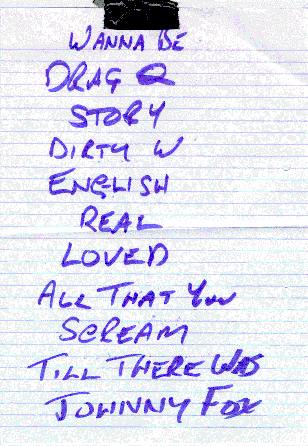 WANNA BE
DRAG Q
STORY
DIRTY W
ENGLISH
REAL
LOVED
ALL THAT YOU
SCREAM
TILL THERE WAS
JOHNNY FOX